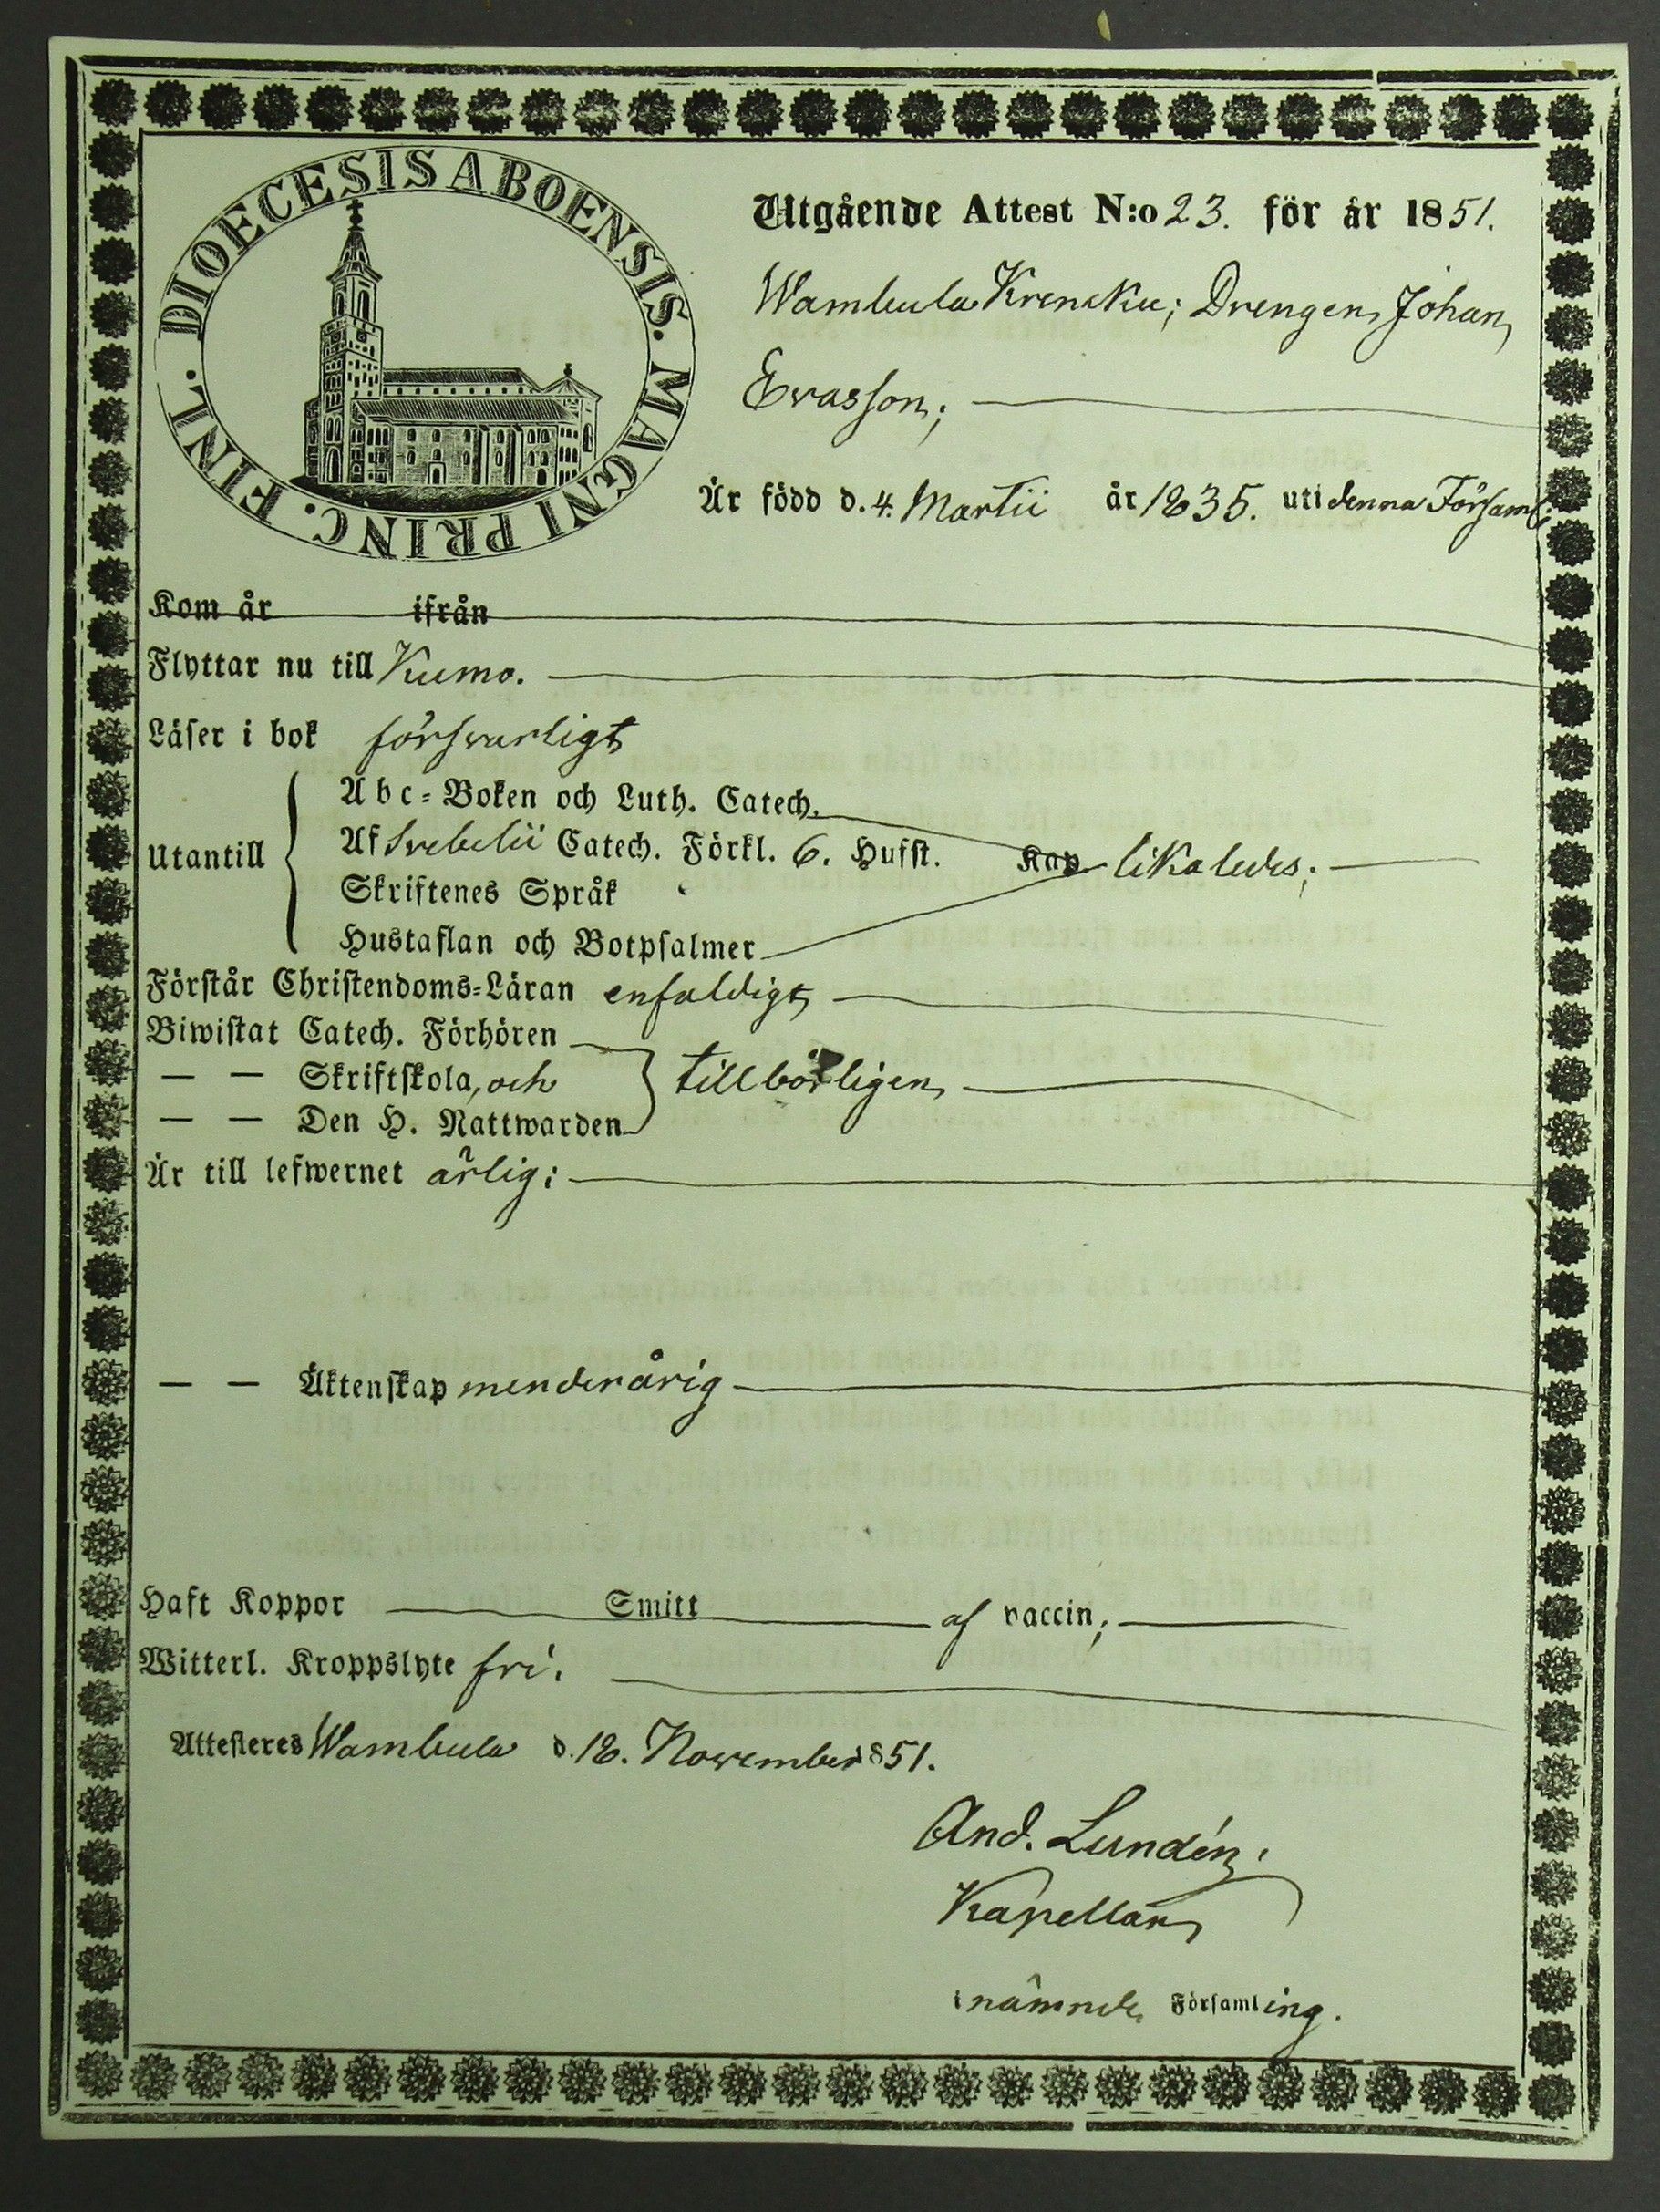 DIOECESIS ABOENSIS. MAGNI PRINC. FINL.
Utgående Attest N:o 23. för år 1851.
Wambula Krencku; Drengen Johan
Evasson;
Är född d. 4. Martii år 1835. uti denna Församl:
Kom år ifrån
Flyttar nu till Kumo.
Läser i bok försvarligt
Utantill
Abc-Boken och Luth. Catech.
Af Svebelii Catech. Förkl. 6. Hufst. Kap likaledes;
Skriftenes Språk
Hustaflan och Botpsalmer
Förstår Christendoms-Läran enfaldigt
Biwistat Catech. Förhören
— — Skriftskola, och tillbörligen
— — Den H. Nattwarden
Är till lefwernet ärlig;
— — Äktenskap menderårig
Haft Koppor Smitt af vaccin;
Witterl. Kroppslyte fri.
Attesteres Wambula d. 18. November 1851.
And. Lundén;
Kapellan
i nämnde Församling.